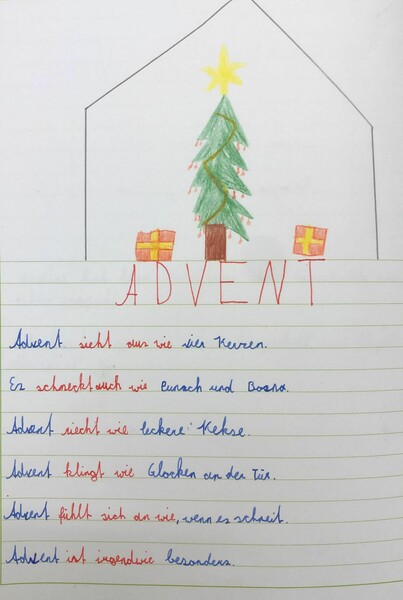 ADVENT
Advent sieht aus wie vier Kerzen.
Es schmeckt auch wie Punsch und
Advent riecht wie leckere Kekse.
Advent klingt wie Glocken an der Tür.
Advent fühlt sich an wie, wenn es schneit.
Advent ist irgendwie besonders.